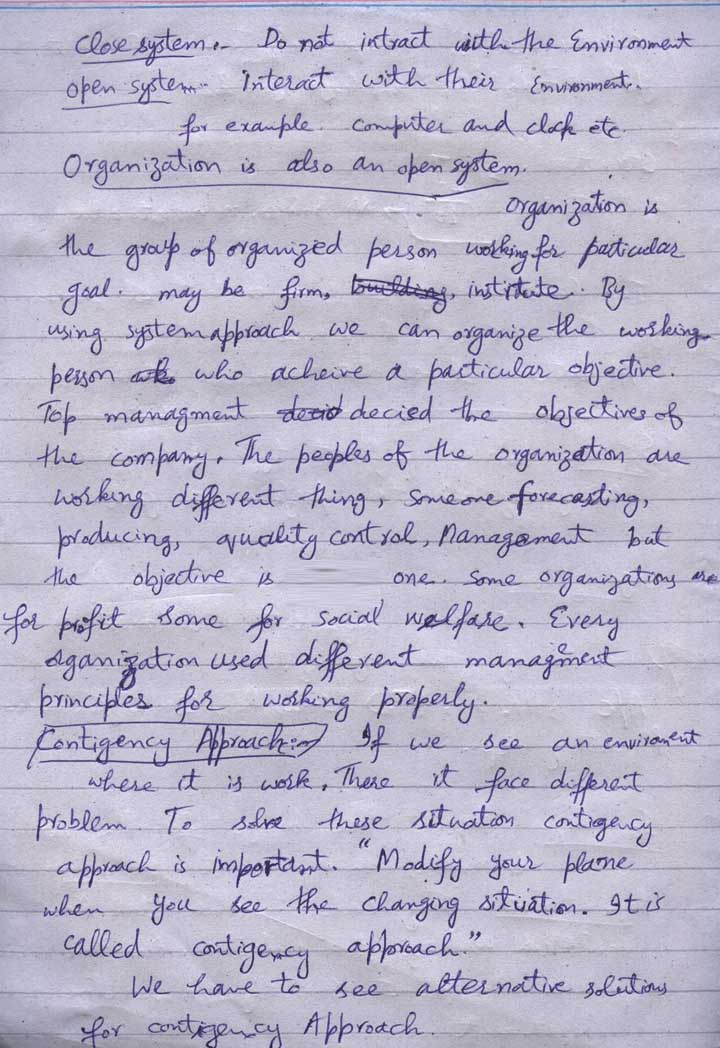 Close system:- Do not intract with the Environment
open system:- Interact with their Environment.
for example. computer and clock etc.
Organization is also an open system.
Organization is
the group of organized person working for particular
goal. may be firm, building, institute. By
using system approach we can organize the working
person who acheive a particular objective.
Top managment decied the objectives of
the company. The peoples of the organization are
working different thing, someone forecasting,
producing, quality control, Management but
the objective is one. Some organizations are
for profit some for social welfare. Every
organization used different management
principles for working properly.
Contigency Approach:- If we see an enviroment
where it is work. There it face different
problem. To solve these situation contigency
approach is important. "Modify your plane
when you see the changing situation. It is
called contigency approach."
We have to see alternative solutions
for contigency Approach.